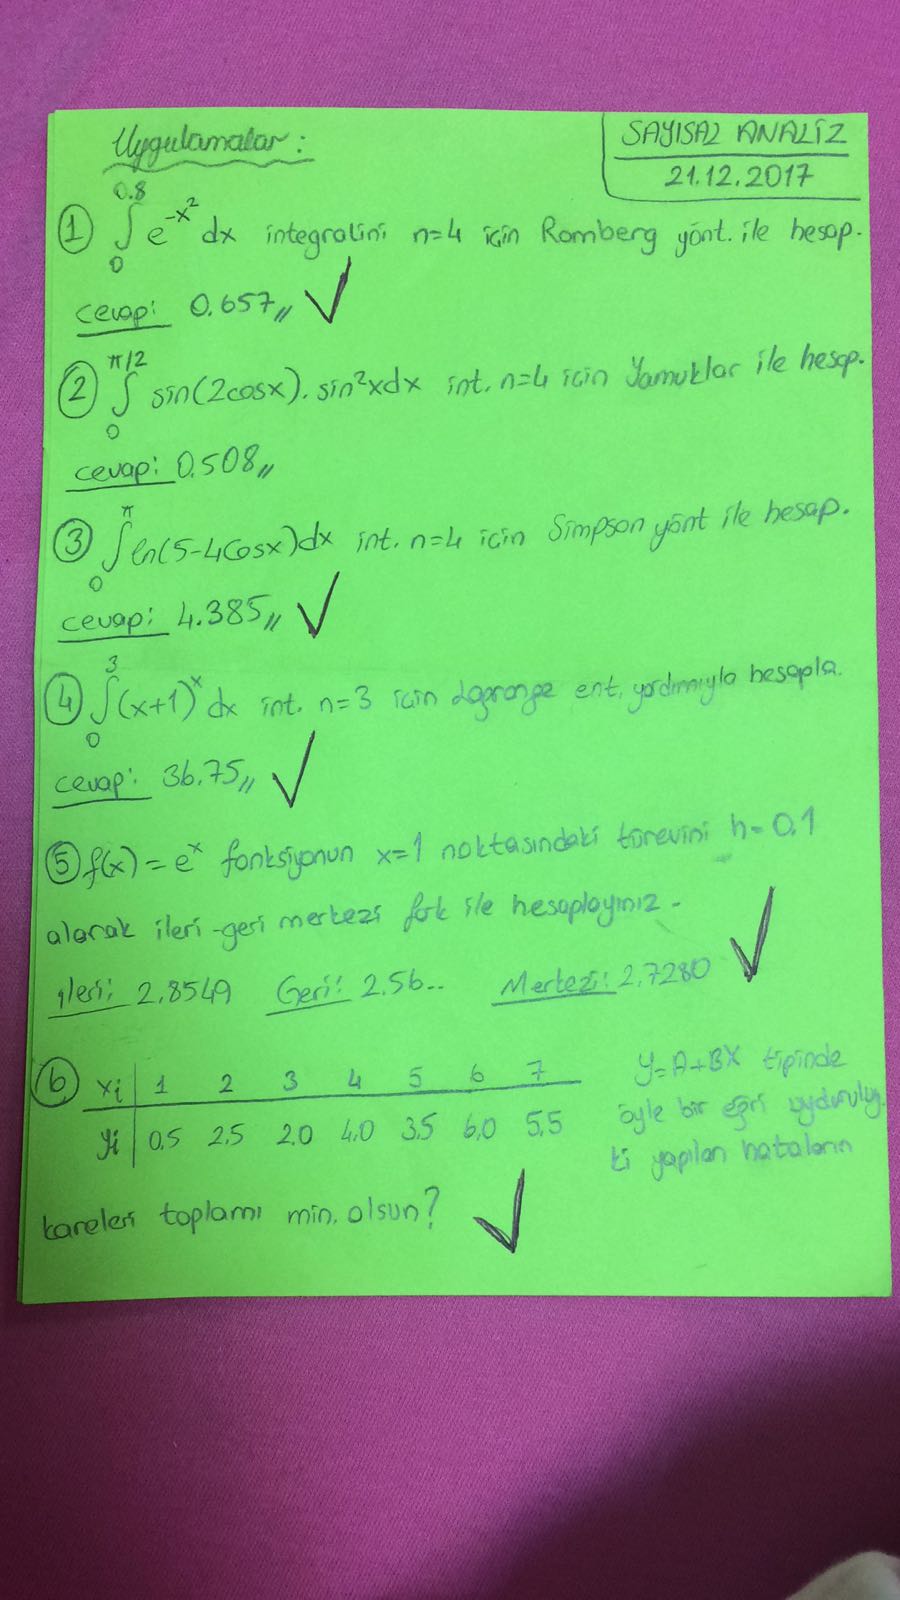 Uygulamalar:
SAYISAL ANALİZ
21.12.2017
① ∫₀^0.8 e^-x² dx integralini n=4 için Romberg yönt. ile hesap.
cevap: 0.657,, ✓
② ∫₀^π/2 sin(2cosx).sin²xdx int. n=4 için Yamuklar ile hesap.
cevap: 0.508,,
③ ∫₀^π ln(5-4cosx)dx int. n=4 için Simpson yönt ile hesap.
cevap: 4.385,, ✓
④ ∫₀^3 (x+1)^x dx int. n=3 için Lagrange ent. yardımıyla hesapla.
cevap: 36.75,, ✓
⑤ f(x)=e^x fonksiyonun x=1 noktasındaki türevini h=0.1
alarak ileri-geri merkezi fark ile hesaplayınız.
ileri: 2.8549 Geri: 2.56.. Merkezi: 2.7280 ✓
⑥ xi 1 2 3 4 5 6 7
yi 0.5 2.5 2.0 4.0 3.5 6.0 5.5
Y=A+BX tipinde
öyle bir eğri uyduruluz
ki yapılan hataların
kareleri toplamı min. olsun? ✓